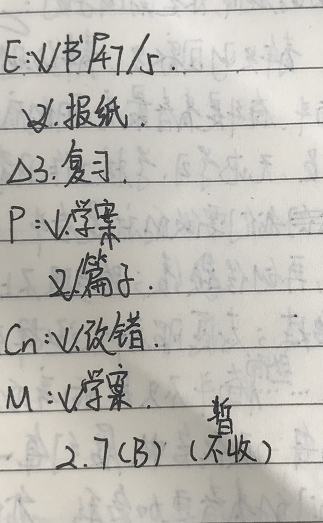 E:1.书P47/5.
2.报纸.
△3.复习.
P:1.学案
2.篇子.
Cn:1.改错.
M:1.学案.
2.7(B) (暂不收)